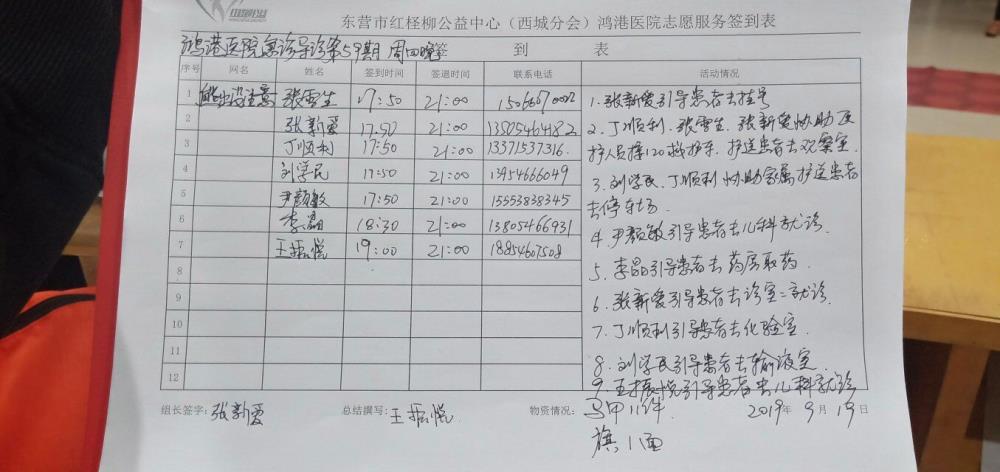 东营市红柽柳公益中心（西城分会）鸿港医院志愿服务签到表
鸿港医院急诊导诊第59期 周四晚 签 到 表
序号 网名 姓名 签到时间 签退时间 联系电话 活动情况
1 张雪生 17:50 21:00
2 张新爱 17:50 21:00 13505464182
3 丁顺利 17:50 21:00 13371537316
4 刘学民 17:50 21:00 13954666049
5 尹颜敏 17:50 21:00 15553838345
6 李晶 18:30 21:00 13805466931
7 王振悦 19:00 21:00 18854607508
8
9
10
11
12
1.张新爱引导患者去挂号
2.丁顺利.张雪生.张新爱协助医
护人员接120救护车.护送患者去观察室.
3.刘学民.丁顺利协助家属护送患者
去停车场.
4.尹颜敏引导患者去儿科就诊.
5.李晶引导患者去药房取药.
6.张新爱引导患者去诊室二就诊.
7.丁顺利引导患者去化验室.
8.刘学民引导患者去输液室.
9.王振悦引导患者去儿科就诊
组长签字：张新爱 总结撰写：王振悦 物资情况：马甲11件 2019年9月19日
旗1面